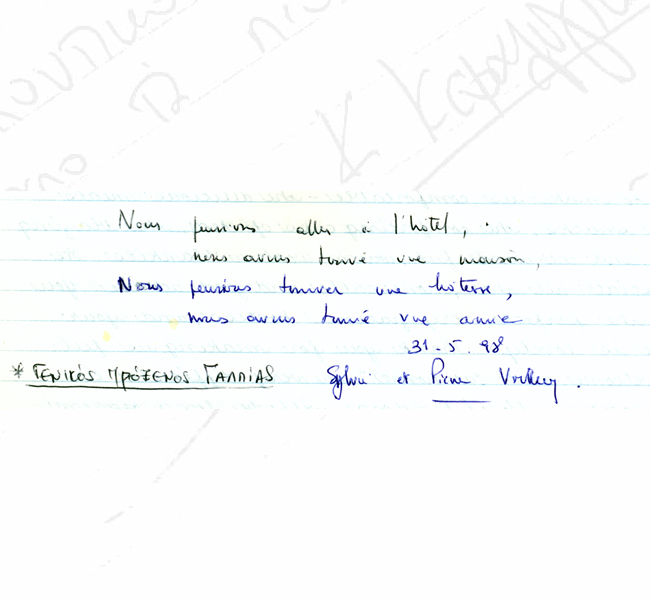 Nous pensions aller à l'hôtel,
nous avons trouvé une maison,
Nous pensions trouver une hôtesse,
nous avons trouvé une amie
31-5.98
* ΓΕΝΙΚΌΣ ΠΡΌΞΕΝΟΣ ΓΑΛΛΙΑΣ Sylvie et Pierre